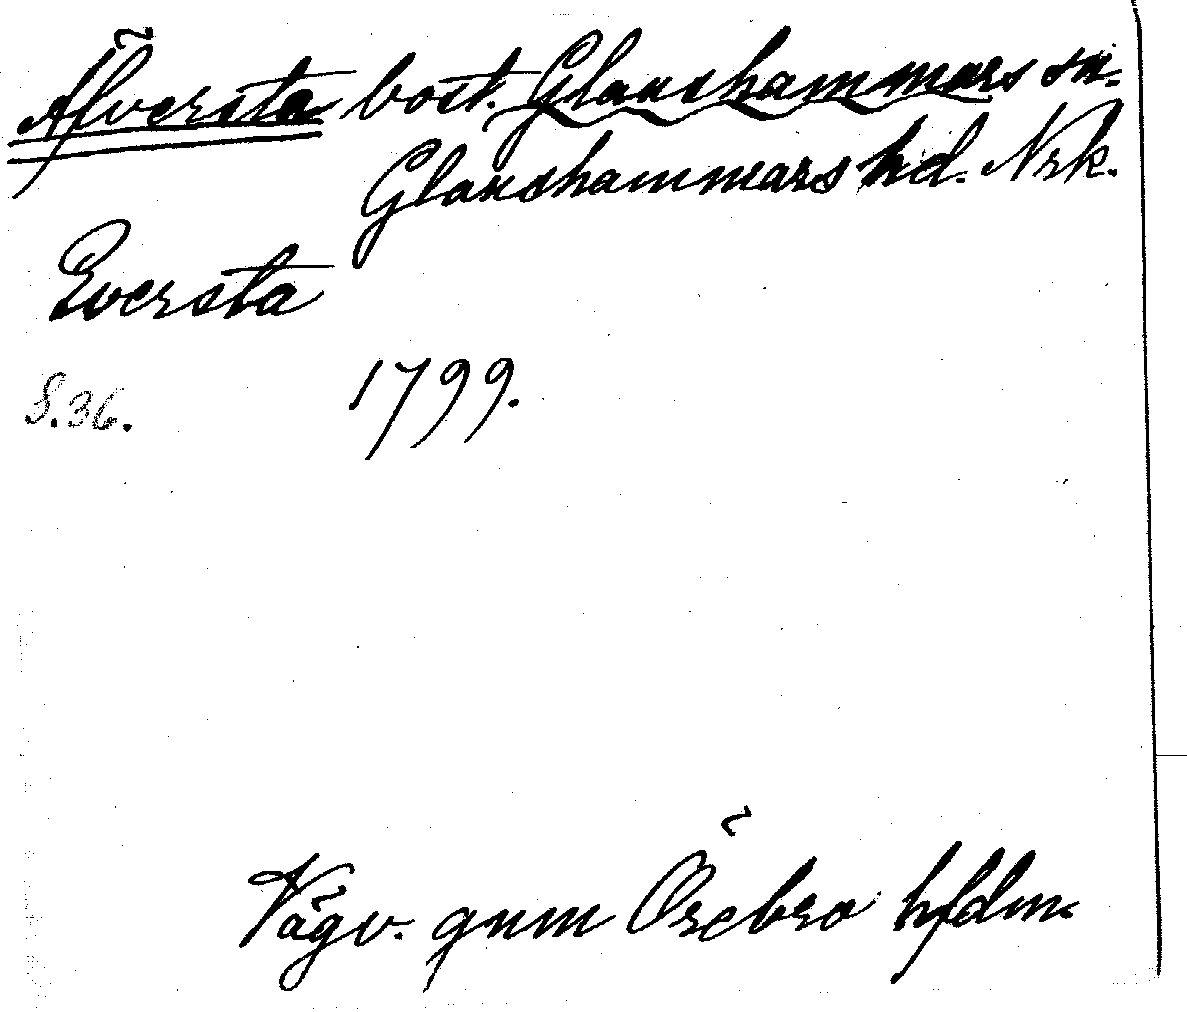 Älversta bost. Glanshammars sn.
Glanshammars hd. Nrk.
Eversta
S.36. 1799.
Vägv. gnm Örebro hfdm.